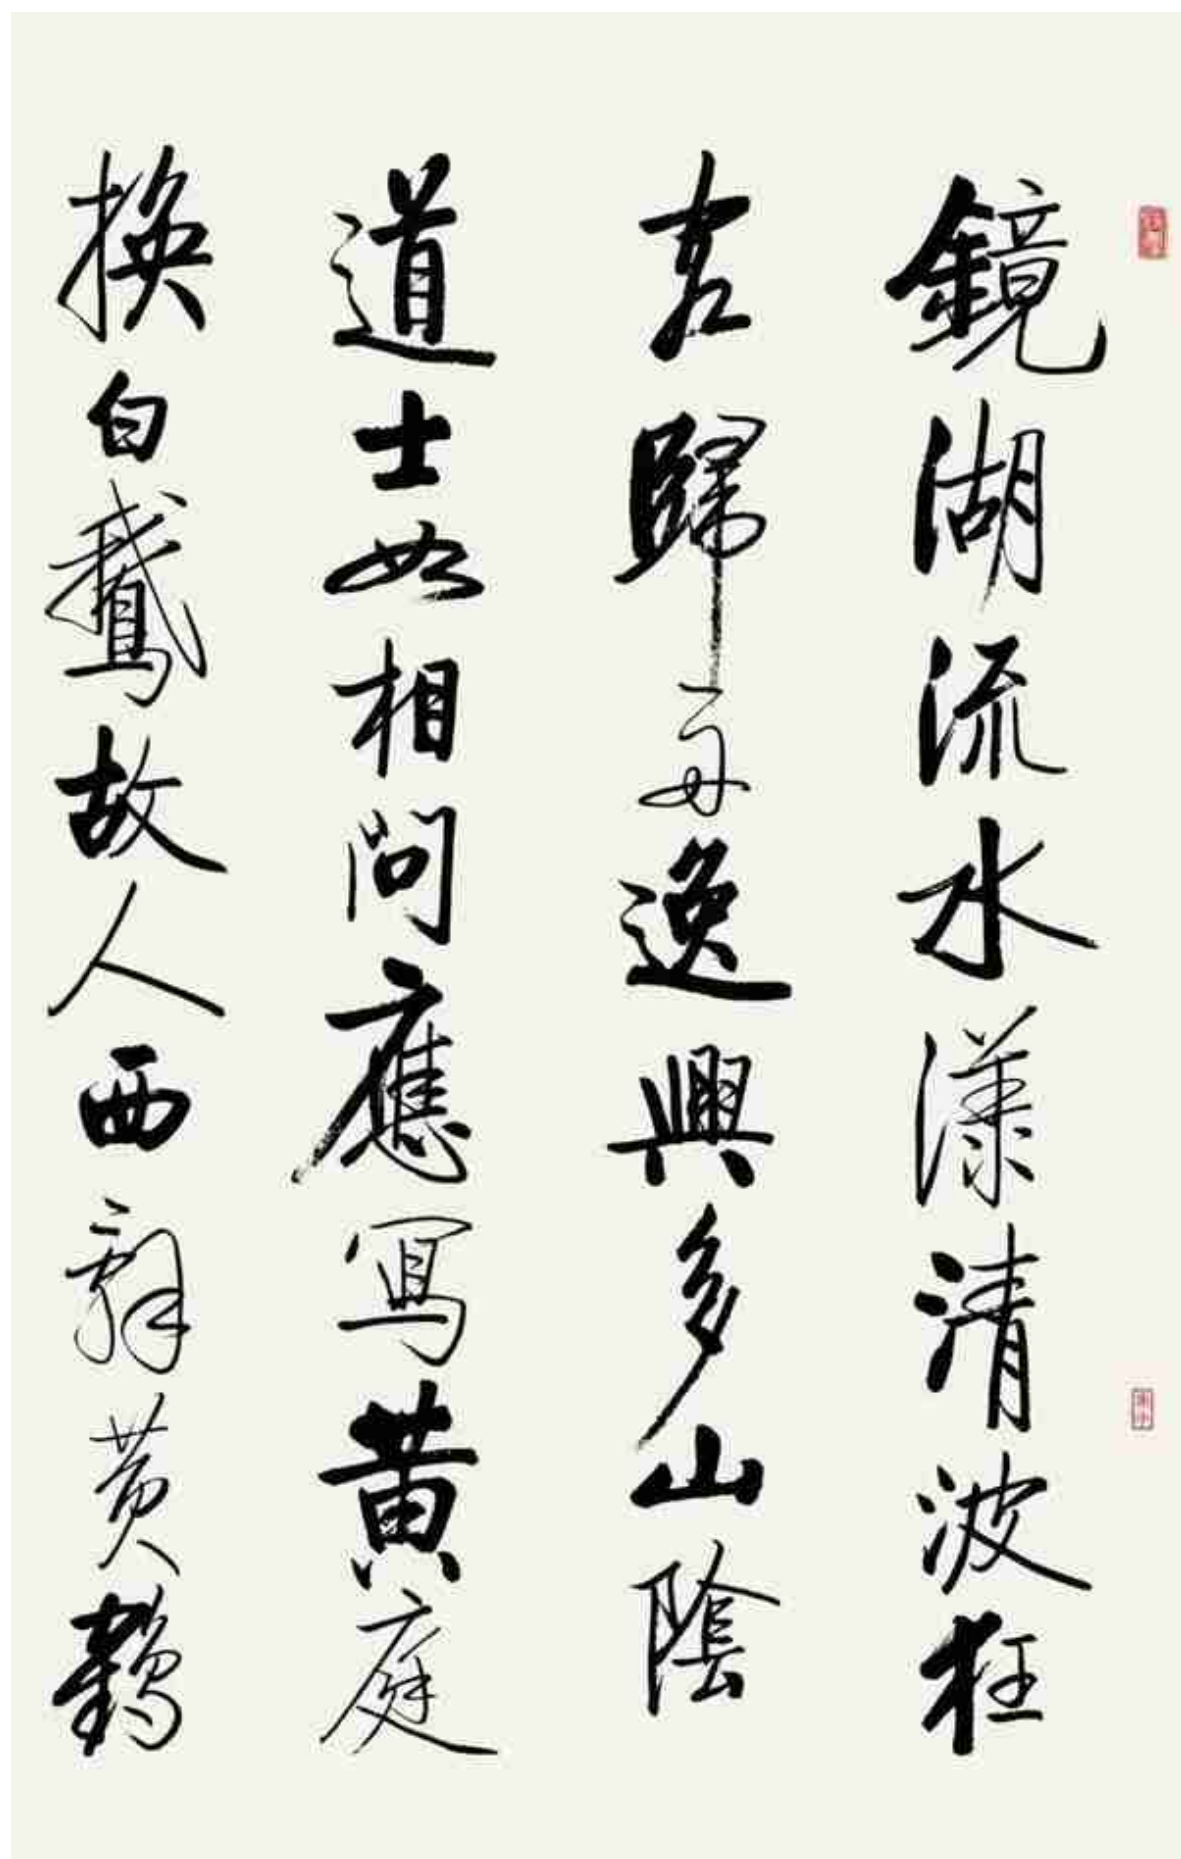 鏡湖流水漾清波狂
客歸舟逸興多山陰
道士如相問應寫黄庭
換白鵞故人西辭黄鶴